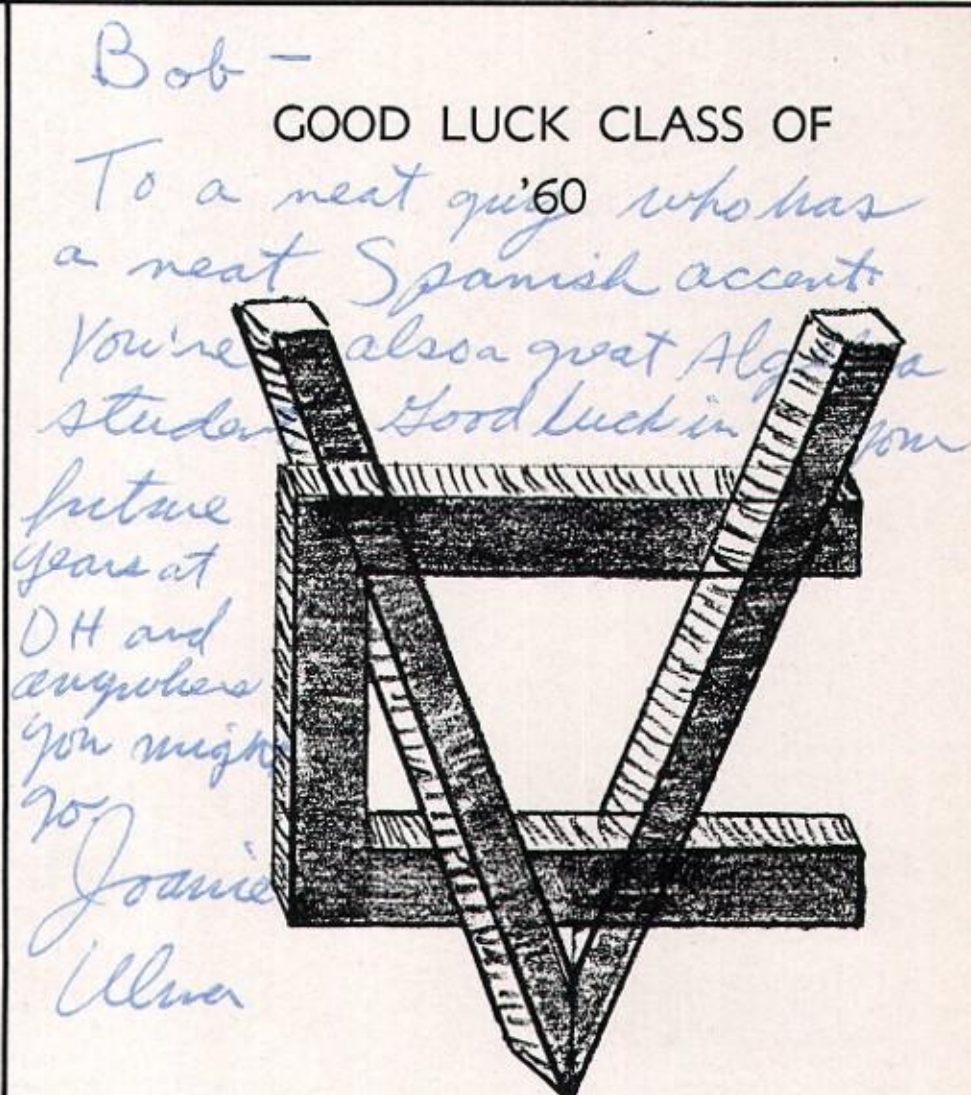 Bob -
GOOD LUCK CLASS OF
'60
To a neat guy who has
a neat Spanish accent.
You're also a great Algebra
student. Good luck in your
future
years at
DH and
anywhere
you might
go.
Joanie